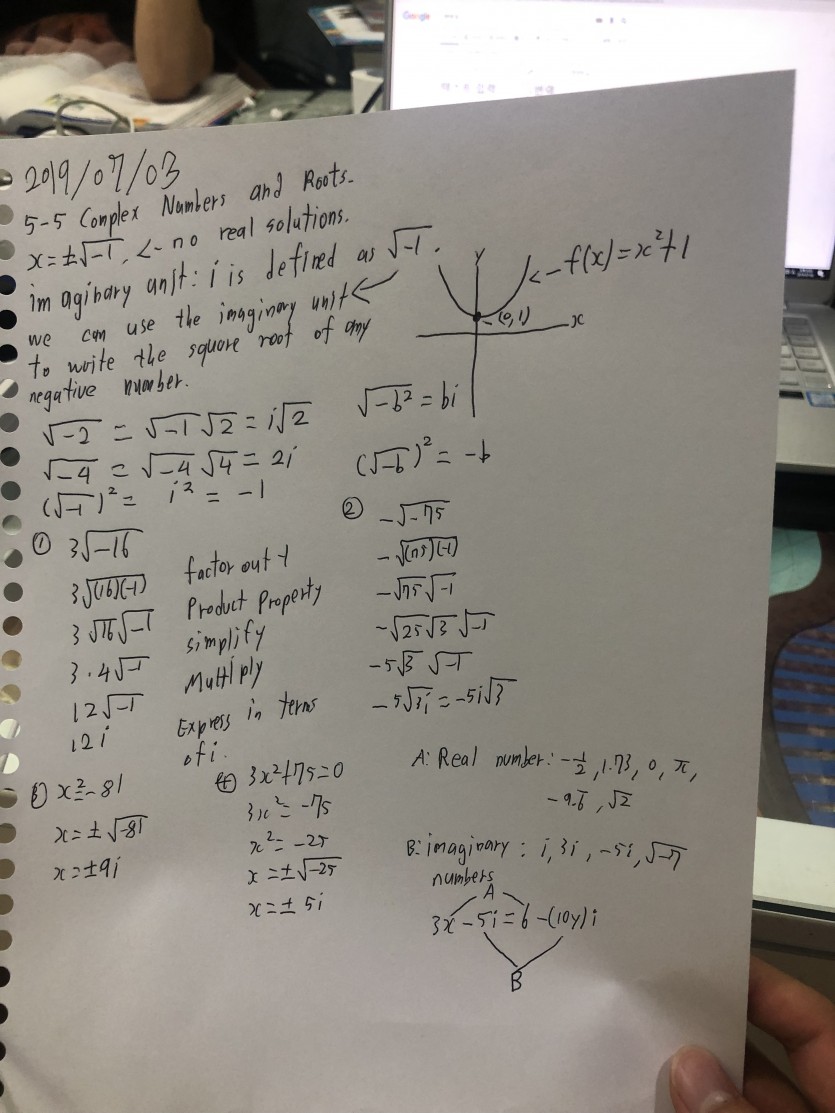 2019/07/03
5-5 Complex Numbers and Roots.
x=±√-1. <- no real solutions.
imagibary unit: i is defined as √-1.
we can use the imaginary unit
to write the square root of any
negative number.
y
<- f(x)=x²+1
(0,1)
x
√-2 = √-1 √2 = i√2
√-4 = √-4 √4 = 2i
(√-1)² = i² = -1
√-b² = bi
(√-b)² = -b
① 3√-16
3√(16)(-1) factor out -1
3√16√-1 Product Property
3·4√-1 simplify
12√-1 Multiply
12i Express in terms
of i.
② -√-75
-√(75)(-1)
-√75√-1
-√25√3√-1
-5√3 √-1
-5√3i = -5i√3
③ x²=-81
x=±√-81
x=±9i
④ 3x²+75=0
3x²=-75
x²=-25
x=±√-25
x=±5i
A: Real number: -1/2, 1.73, 0, π,
-9.6, √2
B: imaginary : i, 3i, -5i, √-7
numbers
A
3x-5i=6-(10y)i
B
Google